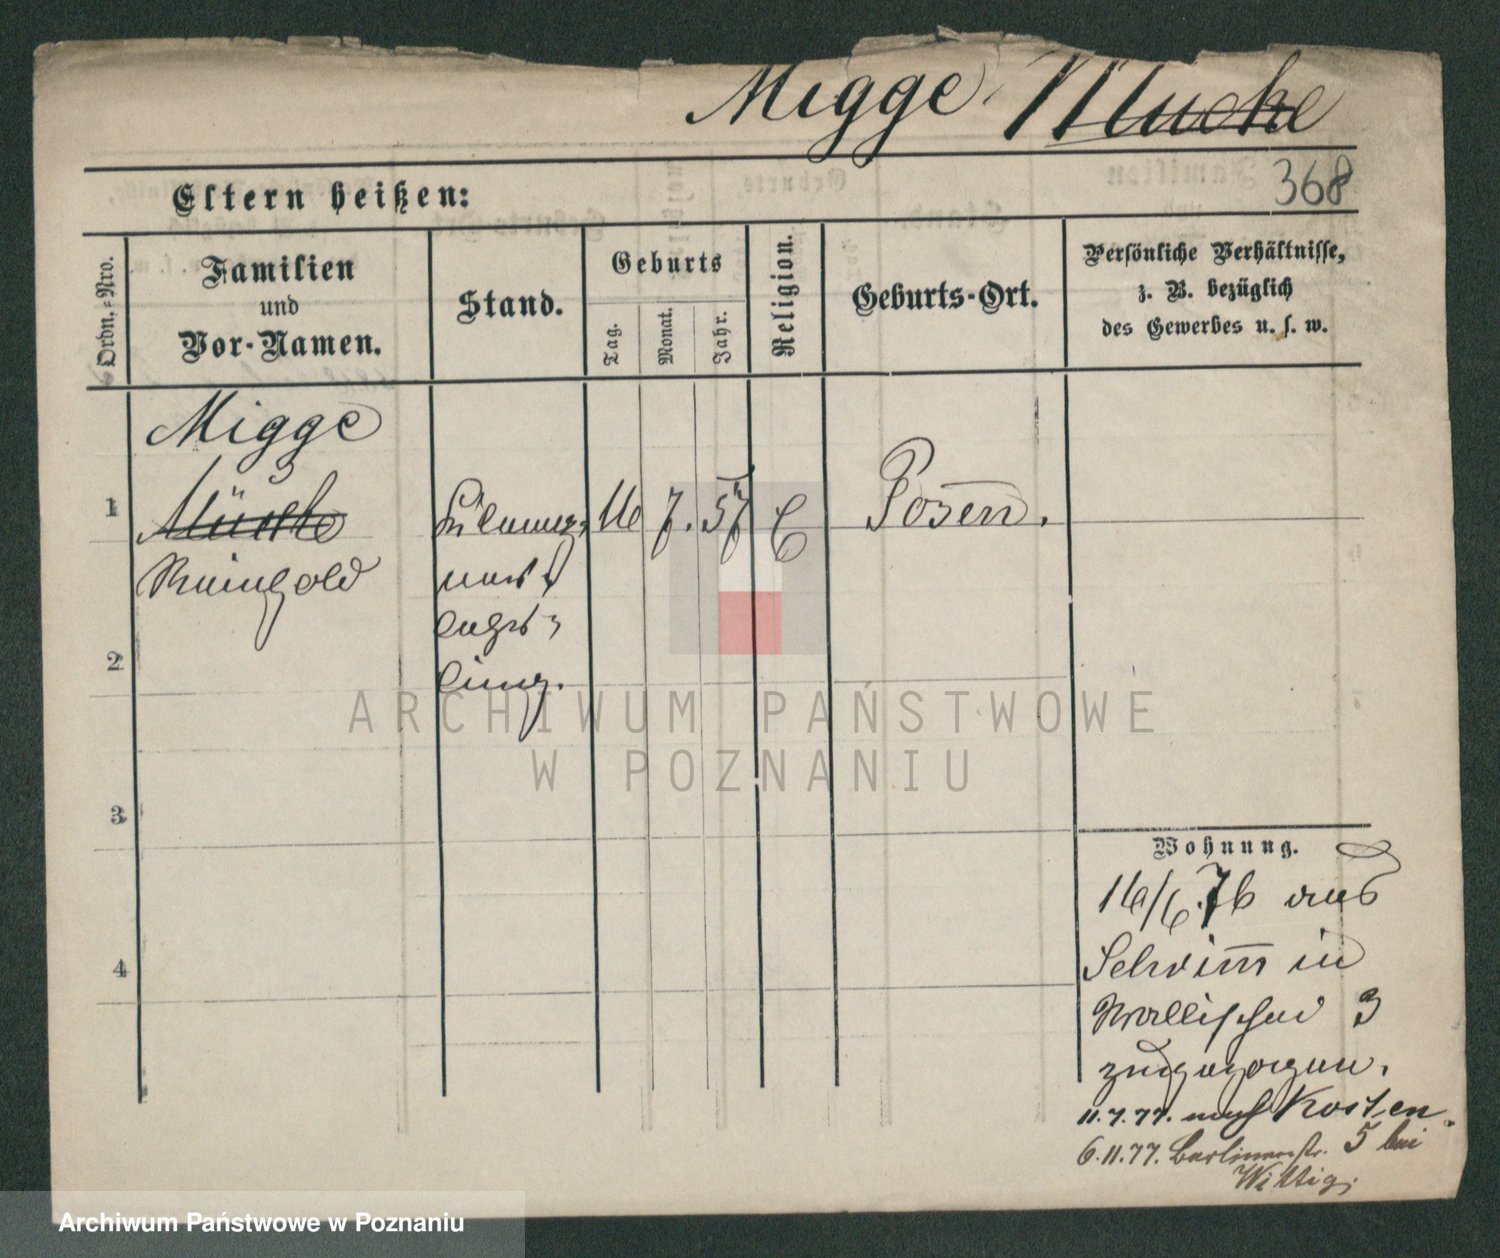 Migge Mücke
368
Eltern heißen:
Ordn.-Nro.
Familien
und
Vor-Namen.
Stand.
Geburts
Tag.
Monat.
Jahr.
Religion.
Geburts-Ort.
Persönliche Verhältnisse,
z. B. bezüglich
des Gewerbes u. s. w.
Migge
1 Mücke 16 7. 57 C Posen.
Reingold
2
3
4
ling.
Wohnung.
16/6.76 aus
Schrimm in
Wallischei 3
zugezogen.
11.7.77. nach Kosten.
6.11.77. Berlinerstr. 5 bei
Wittig.
ARCHIWUM PAŃSTWOWE
W POZNANIU
Archiwum Państwowe w Poznaniu